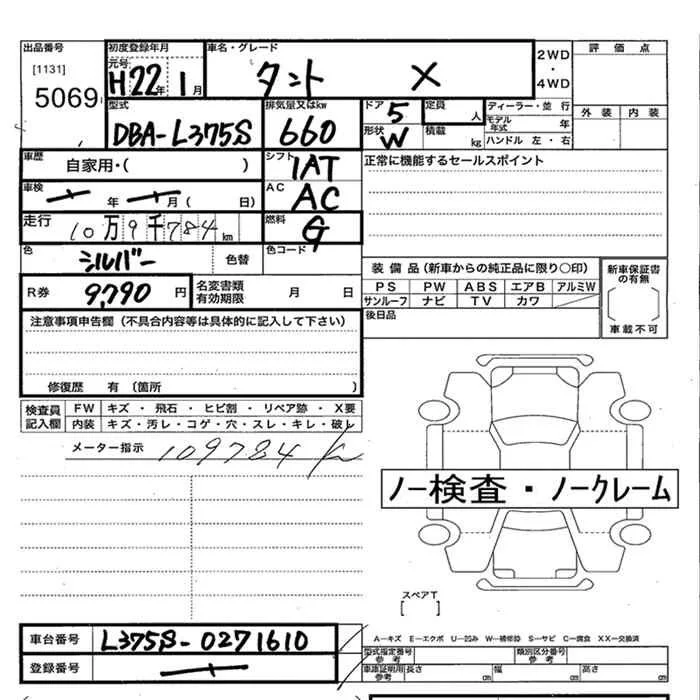 出品番号 初度登録年月 車名・グレード 2WD・4WD 評価点
[1131] 元号
5069 H22年 1月 タント X
型式 排気量又はkw ドア 定員 ディーラー・並行 外装 内装
DBA-L375S 660 5 人 モデル年式 年
形状 W 積載 kg ハンドル 左・右
車歴 自家用・( ) シフト IAT 正常に機能するセールスポイント
車検 年 月( 日) AC AC
走行 10万9千784km 燃料 G
色 シルバー 色替 色コード
装備品(新車からの純正品に限り〇印) 新車保証書の有無
R券 9,790円 名変書類有効期限 月 日
PS PW ABS エアB アルミW
サンルーフ ナビ TV カワ
車載不可
注意事項申告欄(不具合内容等は具体的に記入して下さい) 後日品
修復歴 有(箇所 )
検査員記入欄 FW キズ・飛石・ヒビ割・リペア跡・X要
内装 キズ・汚レ・コゲ・穴・スレ・キレ・破レ
メーター指示 109784 km
ノー検査・ノークレーム
スペアT
[ ]
車台番号 L375S-0271610
A―キズ E―エクボ U―凹み W―補修跡 S―サビ C―腐食 XX―交換済
登録番号
型式指定番号 参考 類別区分番号 参考
車庫証明用 参考 長さ cm 幅 cm 高さ cm